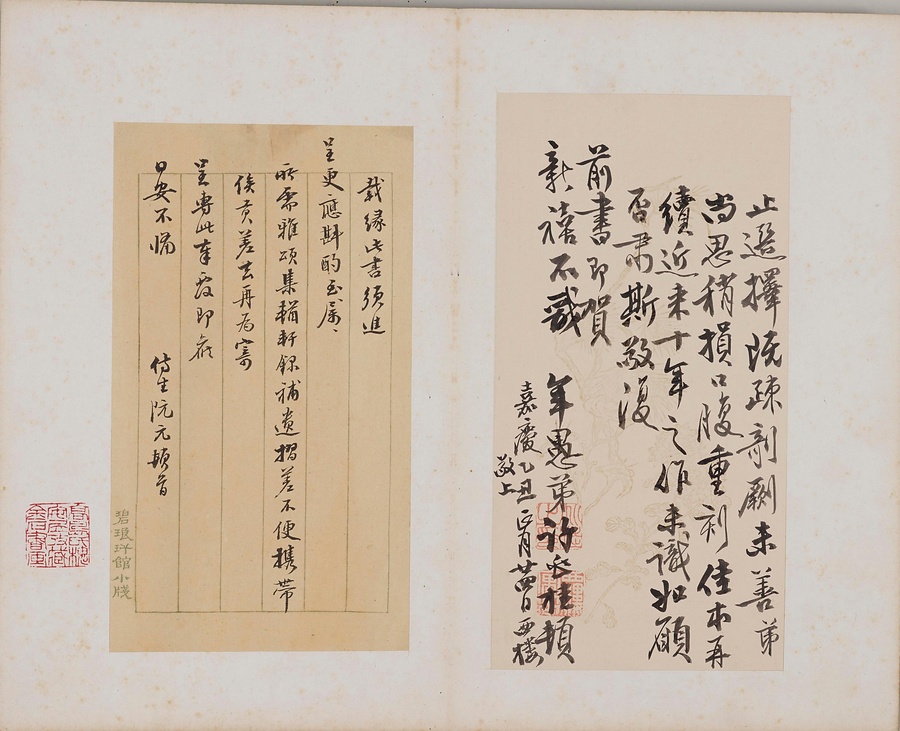 止選擇既疎剞劂未善弟
尚思稍損口腹重刻佳本再
續近來十年之作未識如願
否肅斯敬復
前書即賀
新禧不戩
年愚弟許丞桂頓
嘉慶乙丑正月廿四日西樓
敬上
載緣此書須進
呈更應斟酌
所需雅頌集輶軒錄補遺摺差不便攜帶
俟貢差去再為寄
呈專此奉覆即候
日安不備
侍生阮元頓首
碧琅玕館小牋